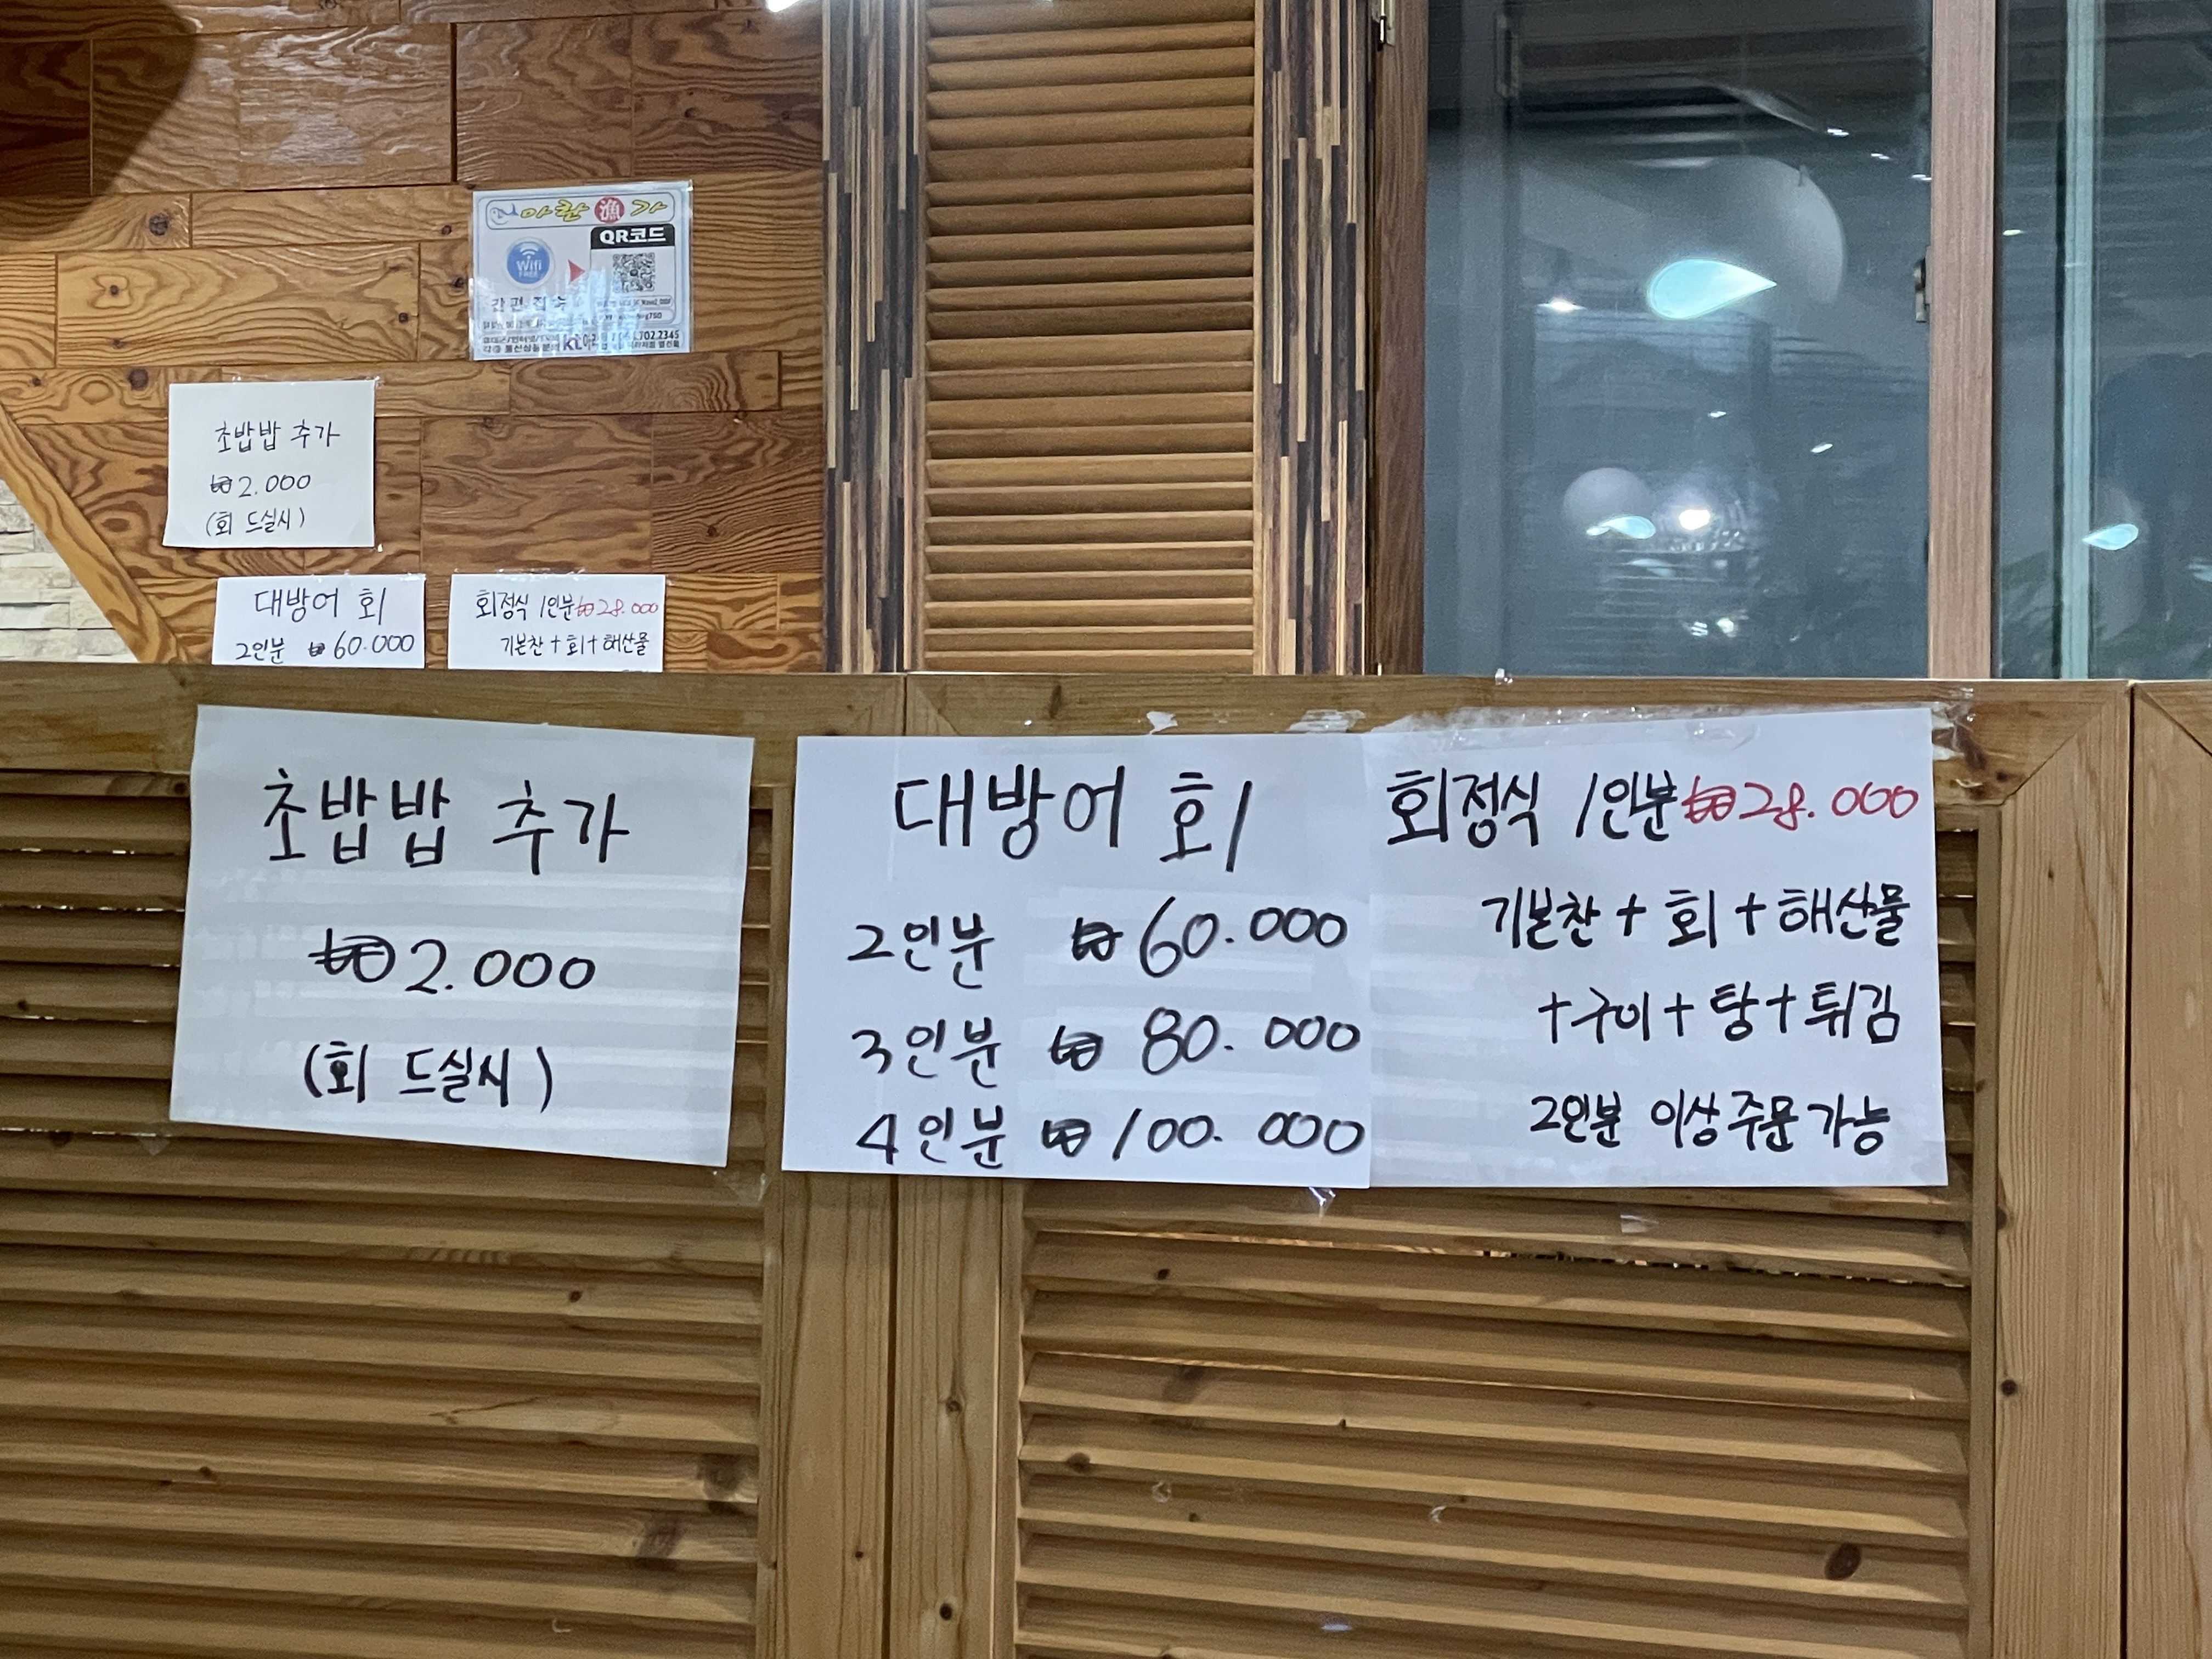 마란 漁 가
QR코드
Wifi
FREE
간편접속
kt
702.2345
초밥밥 추가
₩2.000
(회 드실시)
대방어 회
2인분 ₩60.000
회정식 1인분 ₩28.000
기본찬 + 회 + 해산물
초밥밥 추가
₩2.000
(회 드실시)
대방어 회
2인분 ₩60.000
3인분 ₩80.000
4인분 ₩100.000
회정식 1인분 ₩28.000
기본찬 + 회 + 해산물
+ 구이 + 탕 + 튀김
2인분 이상 주문 가능